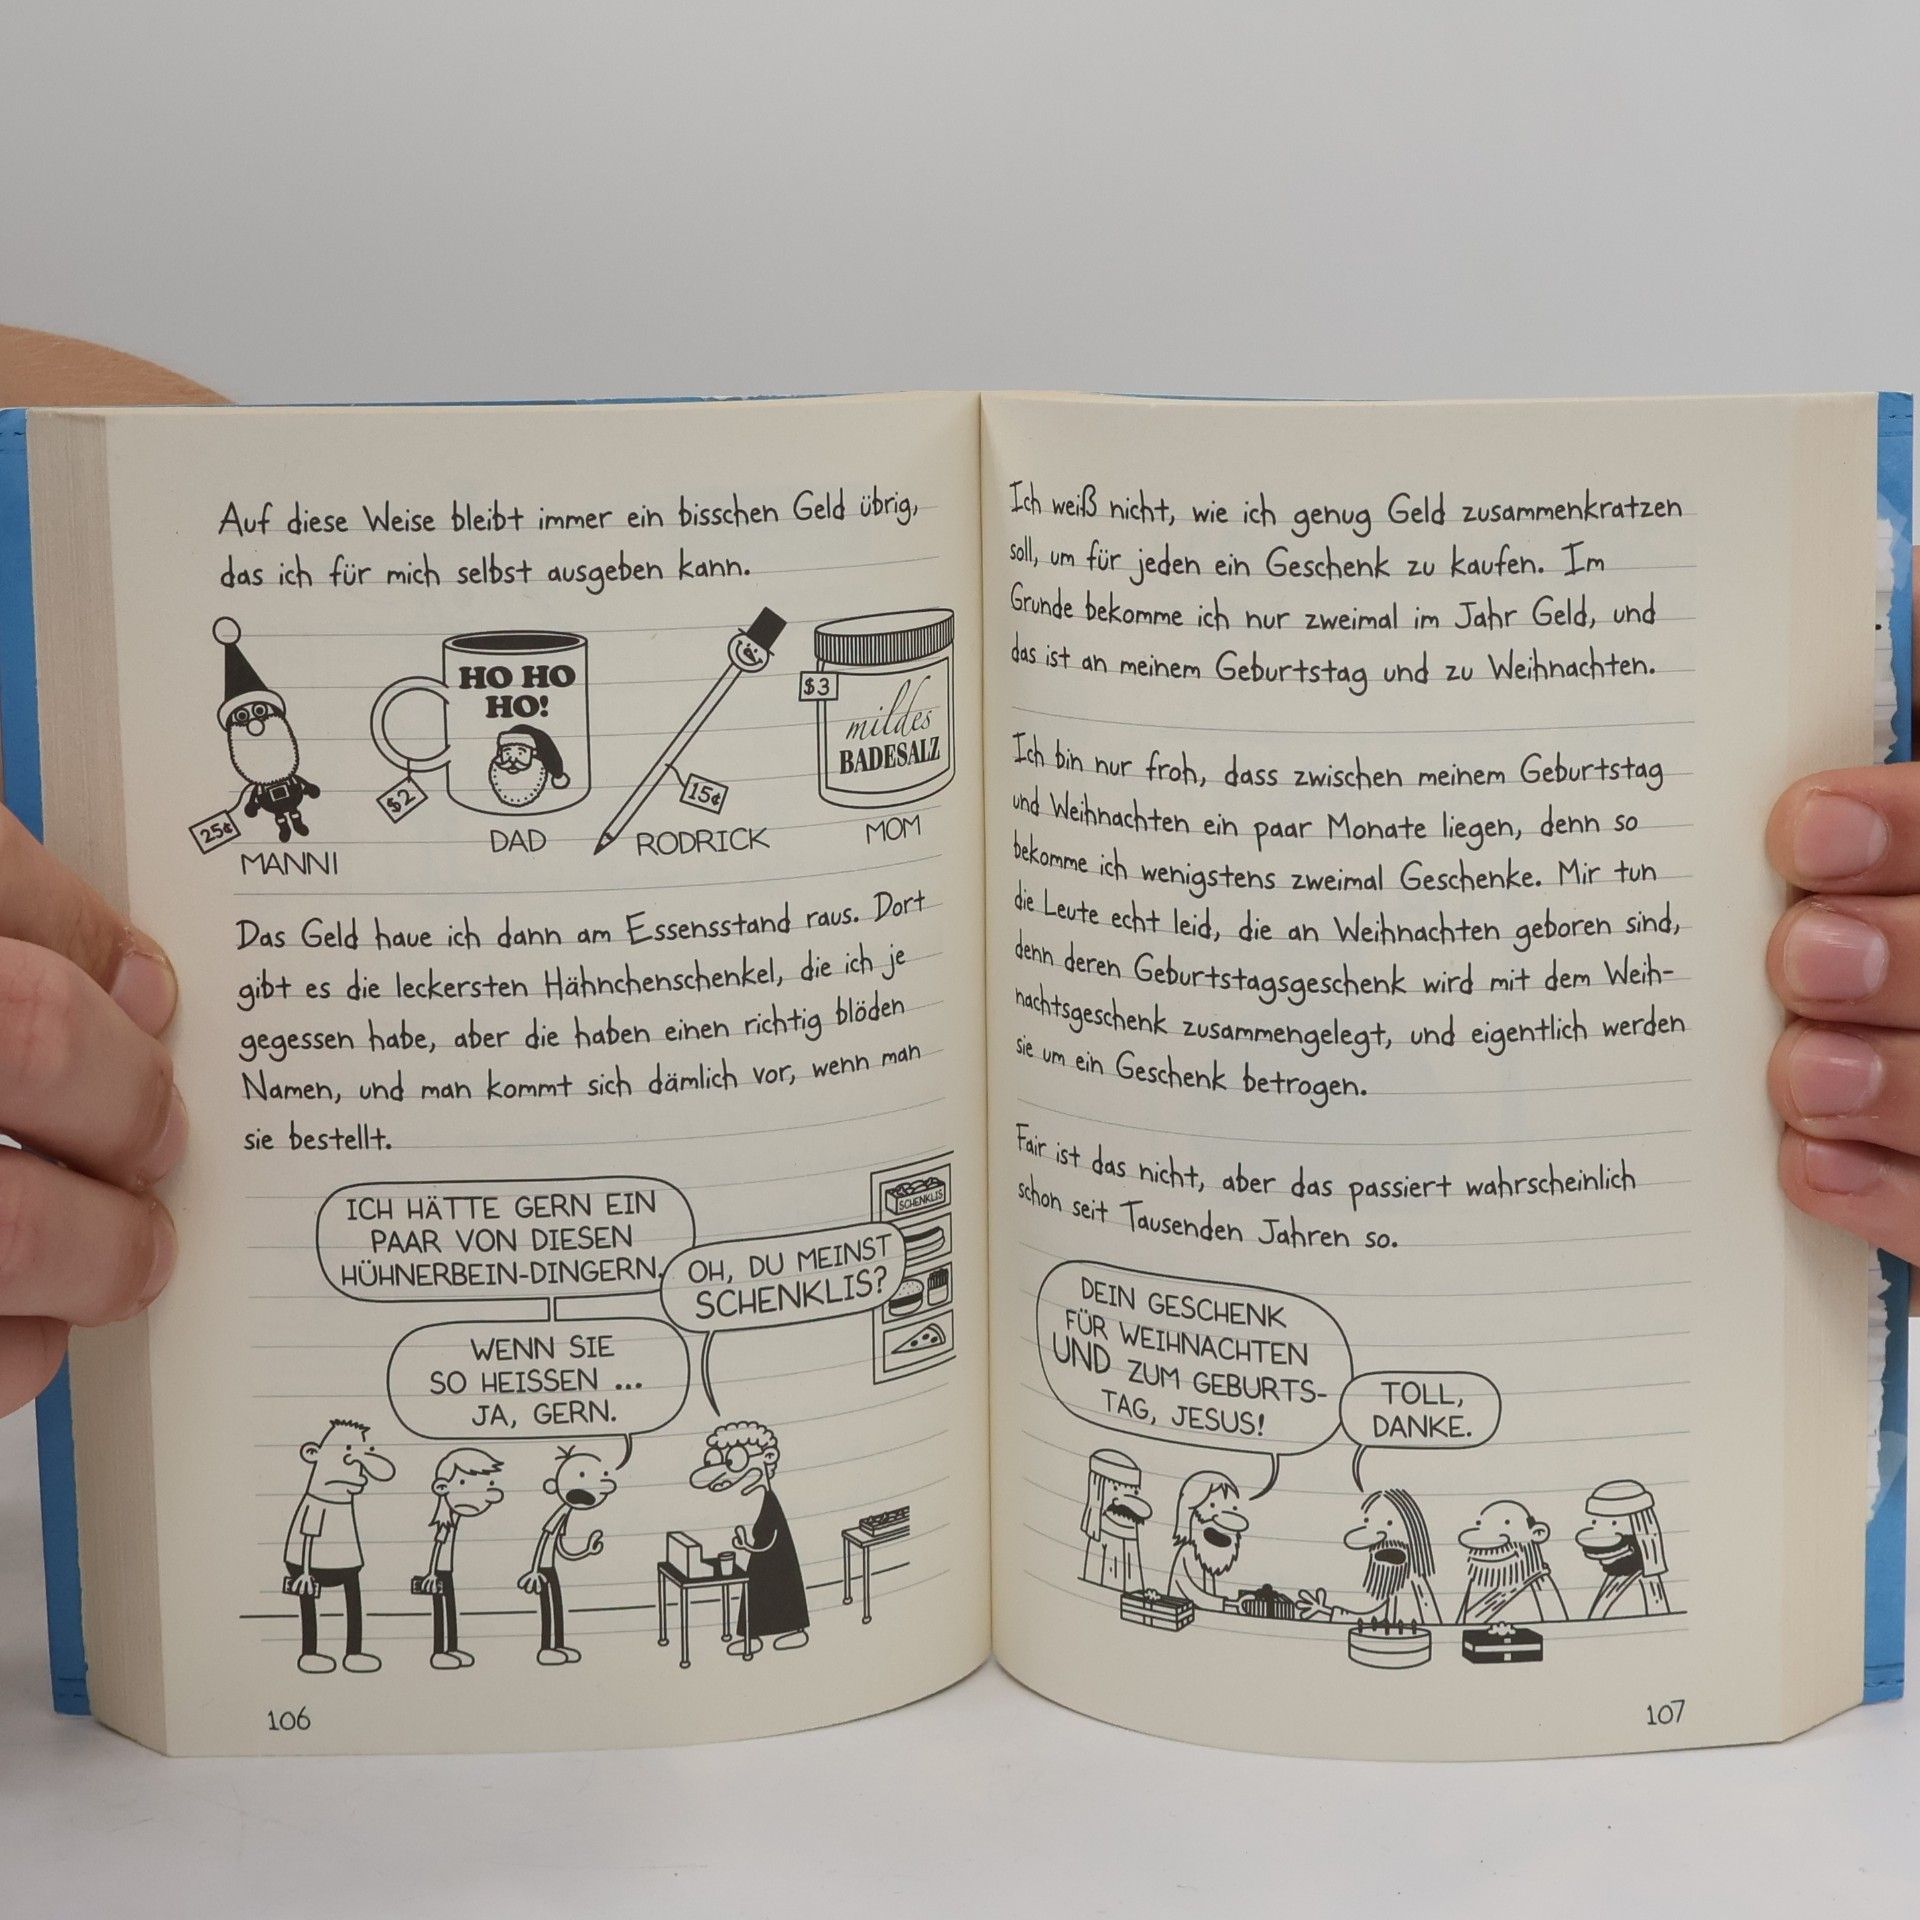 Auf diese Weise bleibt immer ein bisschen Geld übrig,
das ich für mich selbst ausgeben kann.
HO HO
HO!
$3
mildes
BADESALZ
25¢
$2
15¢
MANNI
DAD
RODRICK
MOM
Das Geld haue ich dann am Essensstand raus. Dort
gibt es die leckersten Hähnchenschenkel, die ich je
gegessen habe, aber die haben einen richtig blöden
Namen, und man kommt sich dämlich vor, wenn man
sie bestellt.
ICH HÄTTE GERN EIN
PAAR VON DIESEN
HÜHNERBEIN-DINGERN.
SCHENKLIS
OH, DU MEINST
SCHENKLIS?
WENN SIE
SO HEISSEN ...
JA, GERN.
106
Ich weiß nicht, wie ich genug Geld zusammenkratzen
soll, um für jeden ein Geschenk zu kaufen. Im
Grunde bekomme ich nur zweimal im Jahr Geld, und
das ist an meinem Geburtstag und zu Weihnachten.
Ich bin nur froh, dass zwischen meinem Geburtstag
und Weihnachten ein paar Monate liegen, denn so
bekomme ich wenigstens zweimal Geschenke. Mir tun
die Leute echt leid, die an Weihnachten geboren sind,
denn deren Geburtstagsgeschenk wird mit dem Weih-
nachtsgeschenk zusammengelegt, und eigentlich werden
sie um ein Geschenk betrogen.
Fair ist das nicht, aber das passiert wahrscheinlich
schon seit Tausenden Jahren so.
DEIN GESCHENK
FÜR WEIHNACHTEN
UND ZUM GEBURTS-
TAG, JESUS!
TOLL,
DANKE.
107